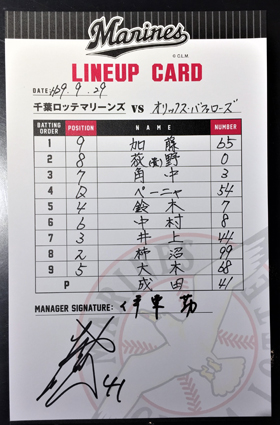 Marines
© C.L.M.
LINEUP CARD
DATE: '09.9.29
千葉ロッテマリーンズ VS オリックス・バファローズ
BATTING ORDER POSITION NAME NUMBER
1 9 加藤 65
2 8 荻野(貴) 0
3 7 角中 3
4 D ペーニャ 54
5 4 鈴木 7
6 6 中村 8
7 3 井上 44
8 2 柿沼 99
9 5 大木 68
P 成田 41
MANAGER SIGNATURE: 伊東 勤
41